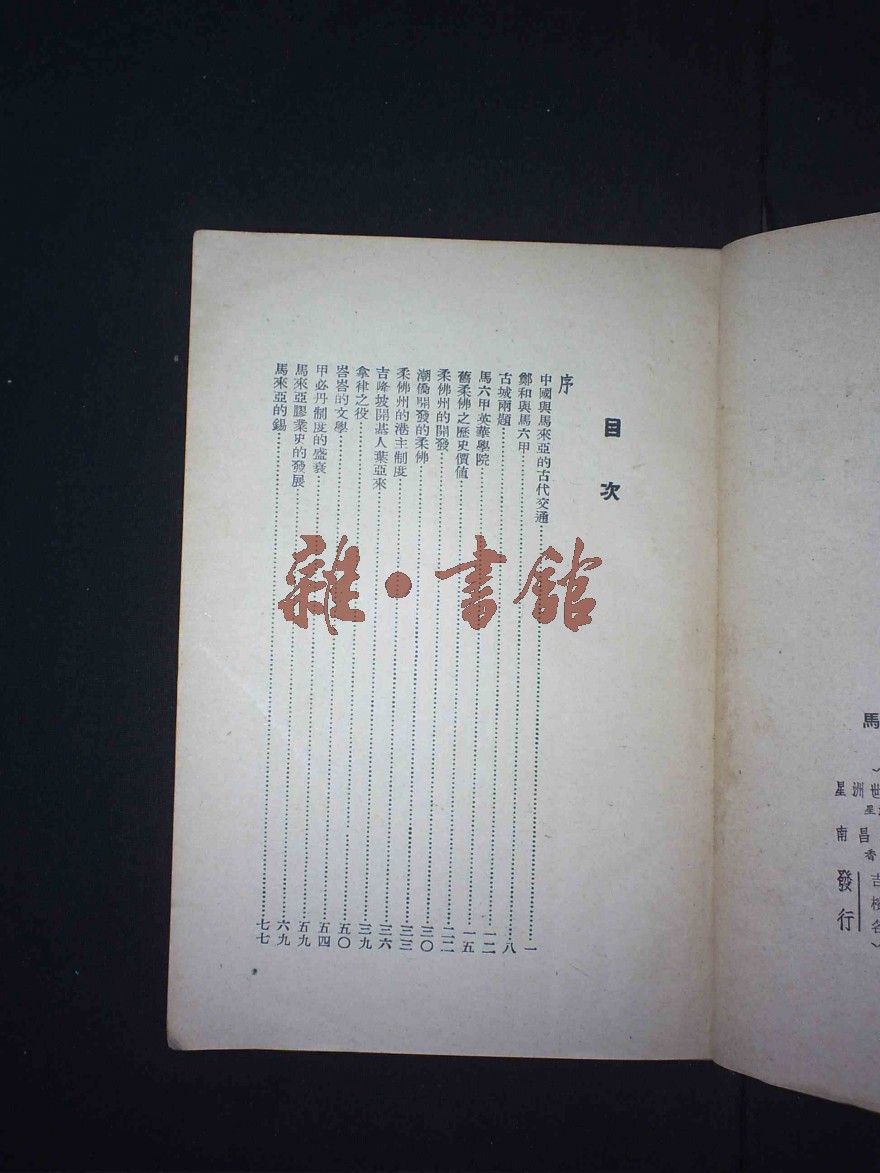 目次
序
中國與馬來亞的古代交通……一
鄭和與馬六甲……八
古城兩題……一二
馬六甲英華學院……一五
舊柔佛之歷史價値……二二
柔佛州的開發……三〇
潮僑開發的柔佛……三三
柔佛州的港主制度……三六
吉隆坡開基人葉亞來……三九
拿律之役……五〇
峇峇的文學……五四
甲必丹制度的盛衰……五九
馬來亞膠業史的發展……六九
馬來亞的錫……七七
雜·書館
馬
星洲世
星
南昌
香
發行
吉